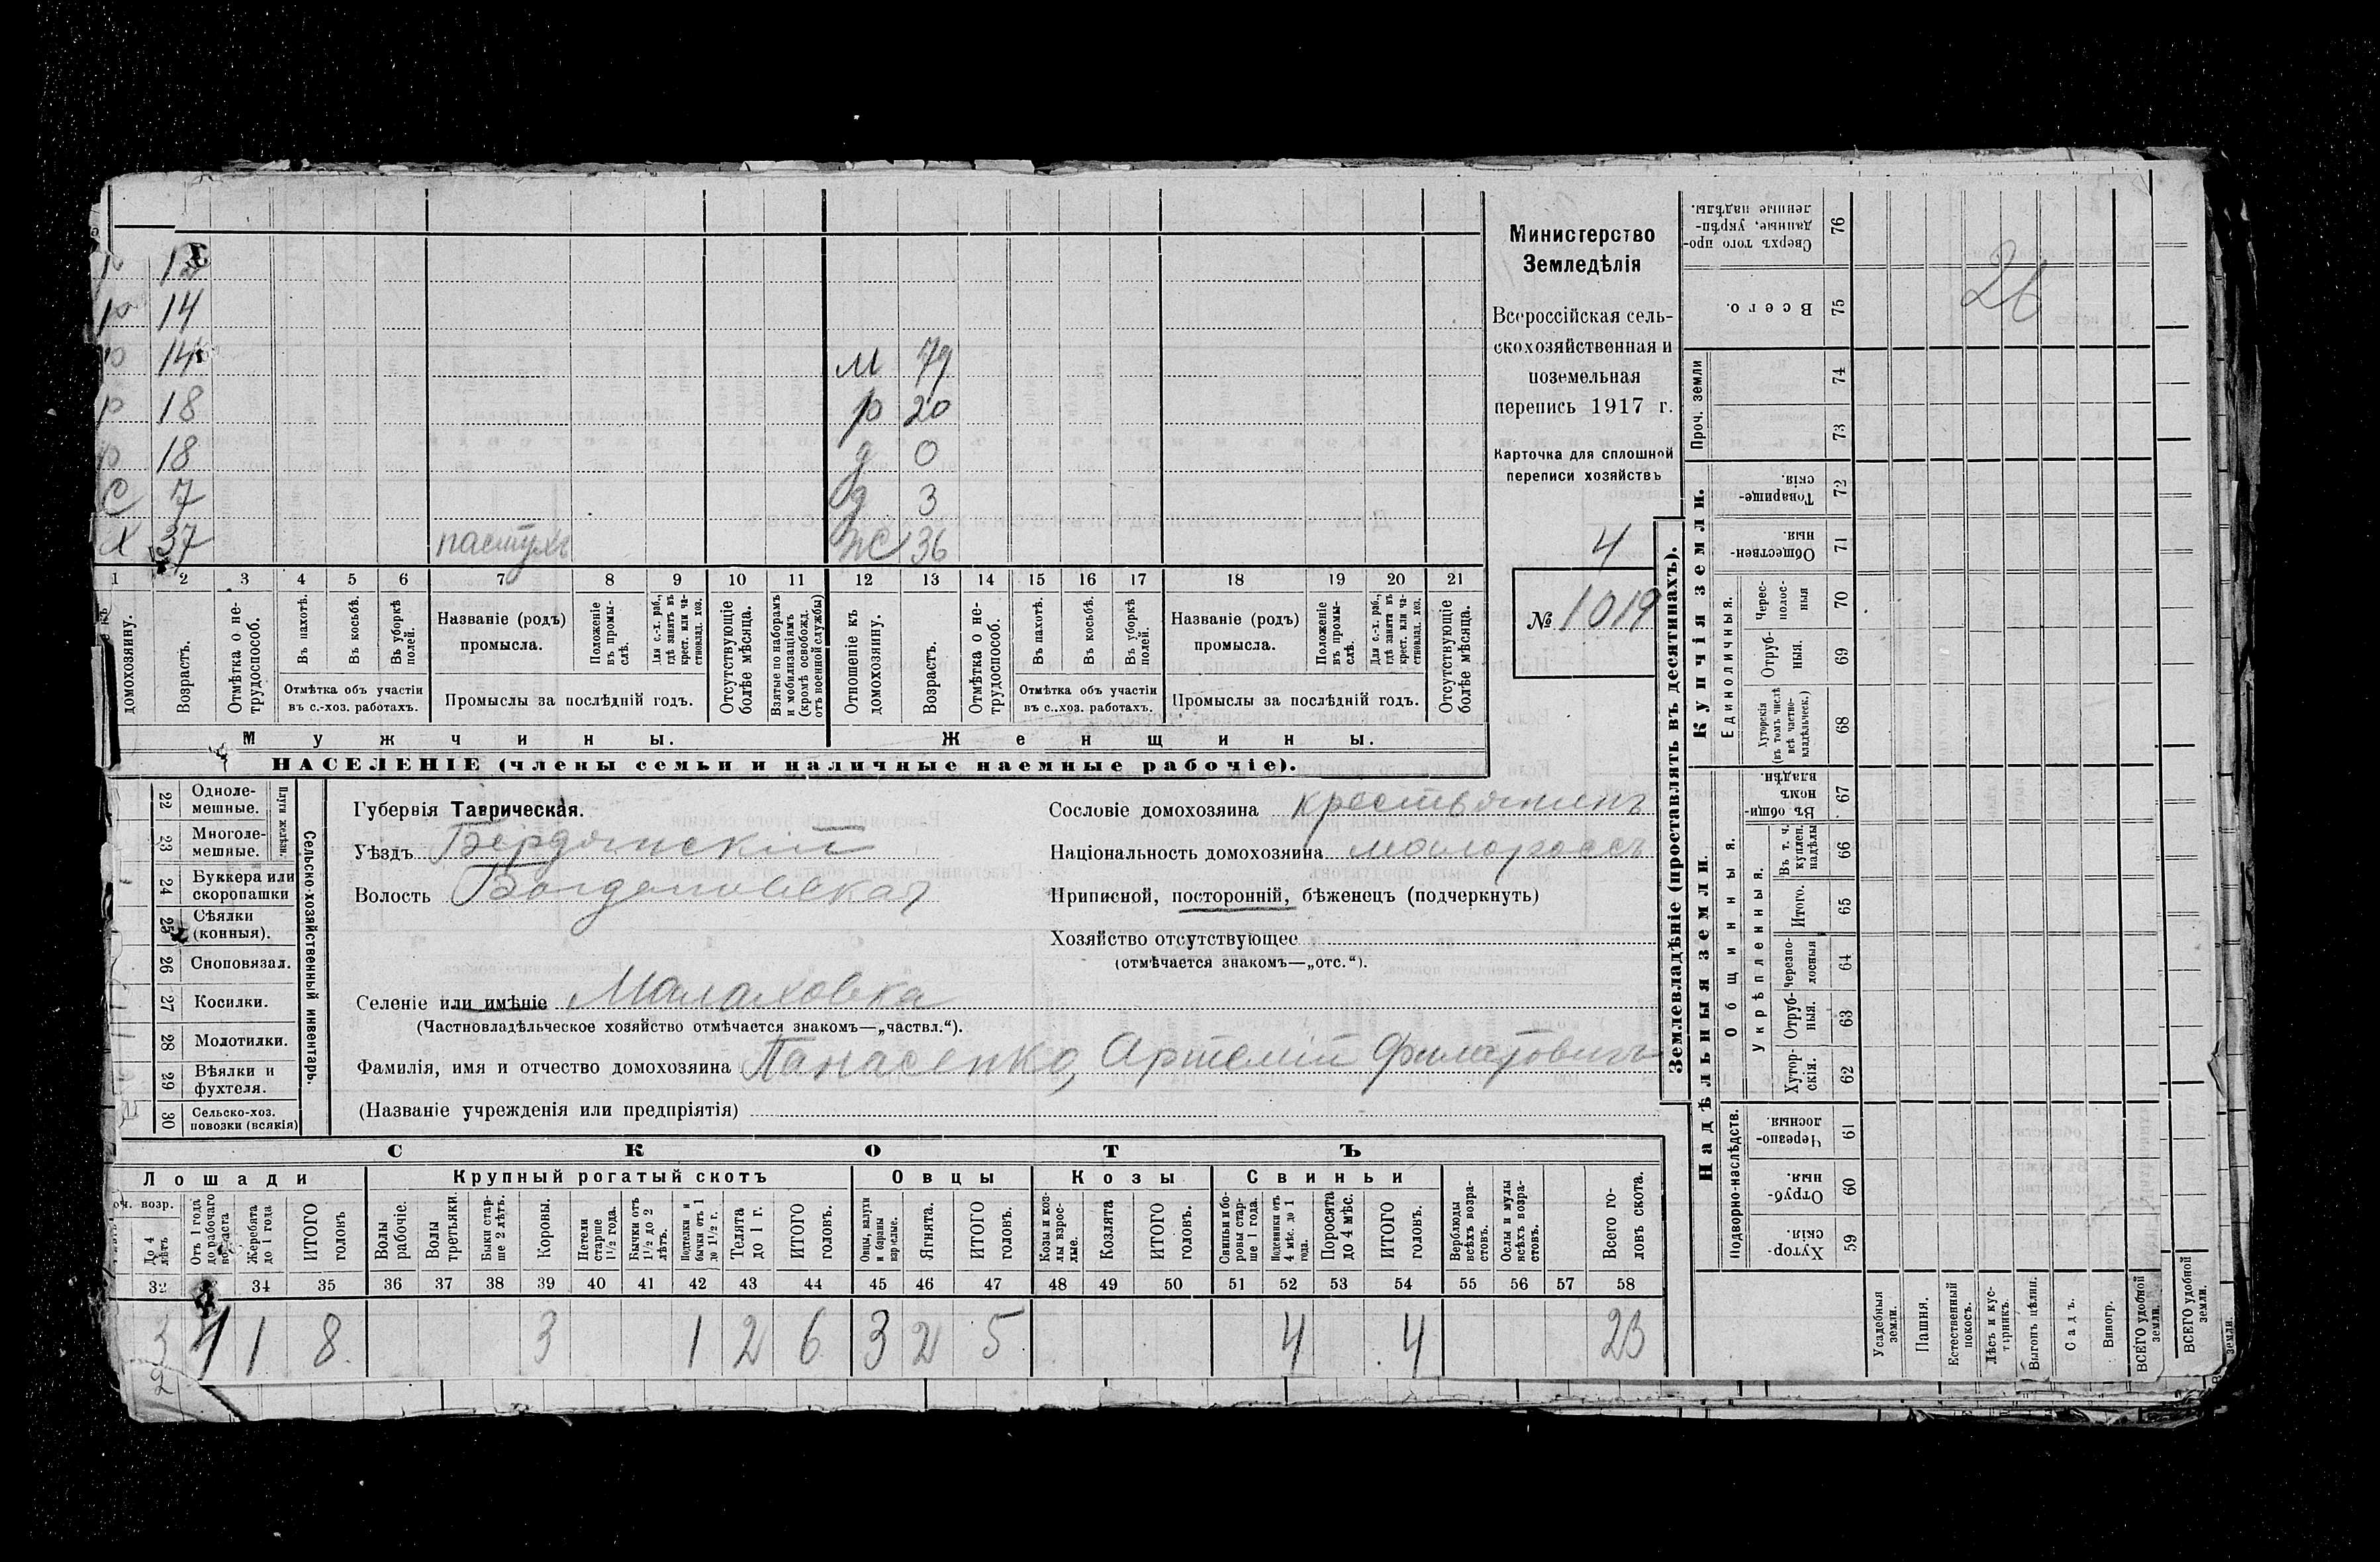 р 12
р 14
р 14
р 18
р 18
С 7
Х 37 пастухъ
М 79
р 20
д 0
д 3
Ж 36
1 2 3 4 5 6 7 8 9 10 11 12 13 14 15 16 17 18 19 20 21
домохозяину.
Возрастъ.
Отмѣтка о нетрудоспособ.
Въ пахотѣ.
Въ косьбѣ.
Въ уборкѣ полей.
Отмѣтка объ участіи въ с.-хоз. работахъ.
Названіе (родъ) промысла.
Положеніе въ промыслѣ.
Для с.-х. раб., гдѣ занятъ въ крест. или частновлад. хоз.
Промыслы за послѣдній годъ.
Отсутствующіе болѣе мѣсяца.
Взятые по наборамъ и мобилизаціямъ (кромѣ освобожд. отъ военной службы)
Отношеніе къ домохозяину.
Возрастъ.
Отмѣтка о нетрудоспособ.
Въ пахотѣ.
Въ косьбѣ.
Въ уборкѣ полей.
Отмѣтка объ участіи въ с.-хоз. работахъ.
Названіе (родъ) промысла.
Положеніе въ промыслѣ.
Для с.-х. раб., гдѣ занята въ крест. или частновлад. хоз.
Промыслы за послѣдній годъ.
Отсутствующіе болѣе мѣсяца.
Мужчины. Женщины.
НАСЕЛЕНІЕ (члены семьи и наличные наемные рабочіе).
Министерство
Земледѣлія
Всероссійская сель-
скохозяйственная и
поземельная
перепись 1917 г.
Карточка для сплошной
переписи хозяйствъ
4
№ 1019
22 Одноле-
мешные.
23 Многоле-
мешные.
Плуги желѣзн.
24 Буккера или
скоропашки
25 Сѣялки
(конныя).
26 Сноповязал.
27 Косилки.
28 Молотилки.
29 Вѣялки и
фухтеля.
30 Сельско-хоз.
повозки (всякія)
Сельско-хозяйственный инвентарь.
Губернія Таврическая.
Уѣздъ Бердянскій
Волость Богдановская
Селеніе или имѣніе Малаховка
(Частновладѣльческое хозяйство отмѣчается знакомъ—„частвл.“).
Фамилія, имя и отчество домохозяина Панасенко, Артемій Филатовичъ
(Названіе учрежденія или предпріятія)
Сословіе домохозяина крестьянинъ
Національность домохозяина малороссъ
Приписной, посторонній, бѣженецъ (подчеркнуть)
Хозяйство отсутствующее
(отмѣчается знакомъ—„отс.“).
СКОТЪ
Лошади Крупный рогатый скотъ Овцы Козы Свиньи
До 4 лѣтъ
Отъ 1 года до рабочаго возраста
Жеребята до 1 года
ИТОГО головъ
Волы рабочіе.
Волы третьяки.
Быки старше 2 лѣтъ.
Коровы.
Нетели старше 1½ года.
Бычки отъ 1½ до 2 лѣтъ.
Подтелки и бычки отъ 1 до 1½ г.
Телята до 1 г.
ИТОГО головъ.
Овцы, валухи и бараны взрослые.
Ягнята.
ИТОГО головъ.
Козы и козлы взрослые.
Козлята
ИТОГО головъ.
Свиньи и боровы старше 1 года.
Подсвинки отъ 4 мѣс. до 1 года.
Поросята до 4 мѣс.
ИТОГО головъ.
Верблюды всѣхъ возрастовъ.
Ослы и мулы всѣхъ возрастовъ.
Всего головъ скота.
32 34 35 36 37 38 39 40 41 42 43 44 45 46 47 48 49 50 51 52 53 54 55 56 57 58
3 1 1 8 3 1 2 6 3 2 5 4 4 23
2
Землевладѣніе (проставлять въ десятинахъ).
Купчія земли.
Надѣльныя земли.
Сверхъ того проданные, укрѣпленные надѣлы. 76
Всего. 75
Проч. земли 74
73
Товарищескія. 72
Общественныя. 71
Единоличныя.
Черес-полосныя 70
Отрубныя. 69
Хуторскія (въ томъ числѣ всѣ частновладѣльческ.) 68
Общинныя.
Въ общинномъ владѣн. 67
Укрѣпленныя.
Въ т. ч. куплен. надѣлы 66
Итого. 65
Черезполосныя 64
Отрубныя. 63
Хуторскія. 62
Подворно-наслѣдств.
Черезполосныя. 61
Отрубныя. 60
Хуторскія. 59
Усадебныя земли.
Пашня.
Естественный покосъ.
Лѣсъ и кустарникъ.
Выгонъ цѣлин.
Садъ.
Виногр.
ВСЕГО удобной земли.
ВСЕГО удобной земли.
земли.